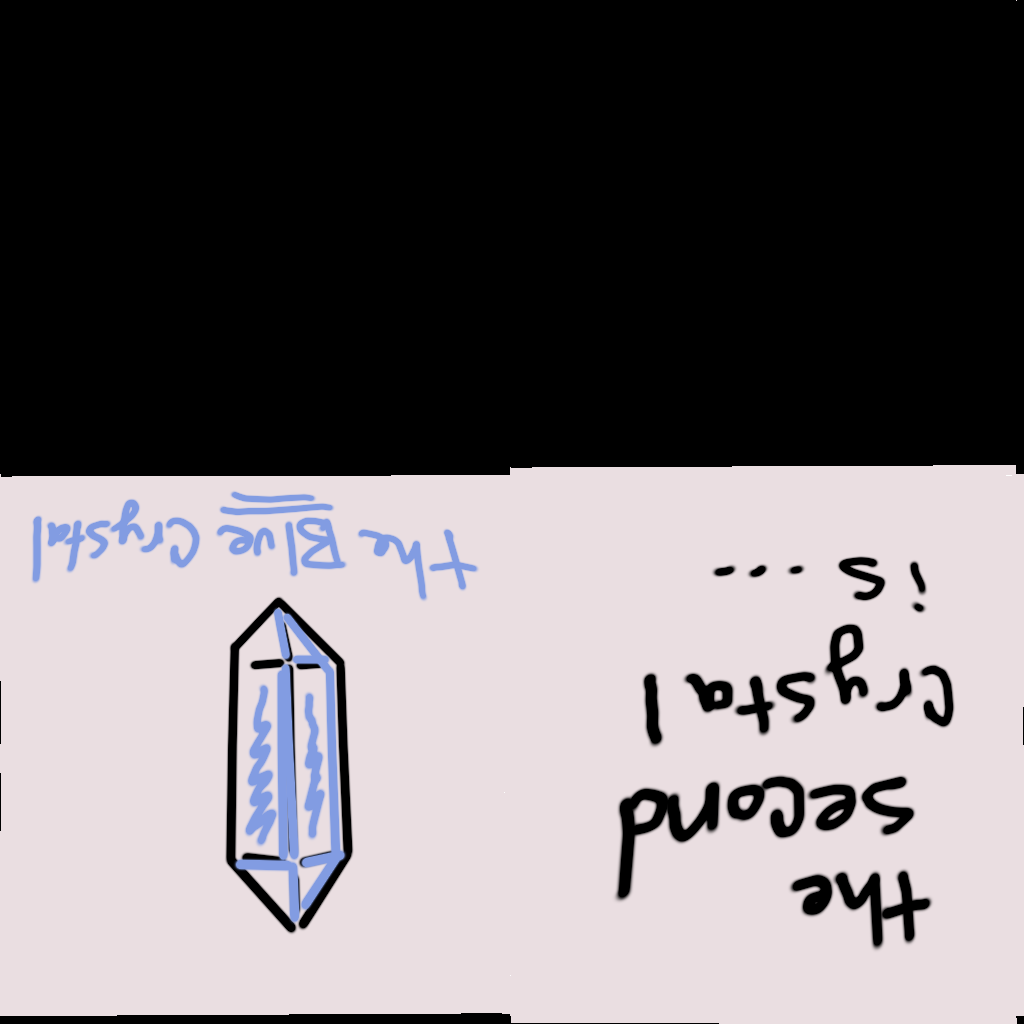 the
second
crystal
is ...
the Blue Crystal